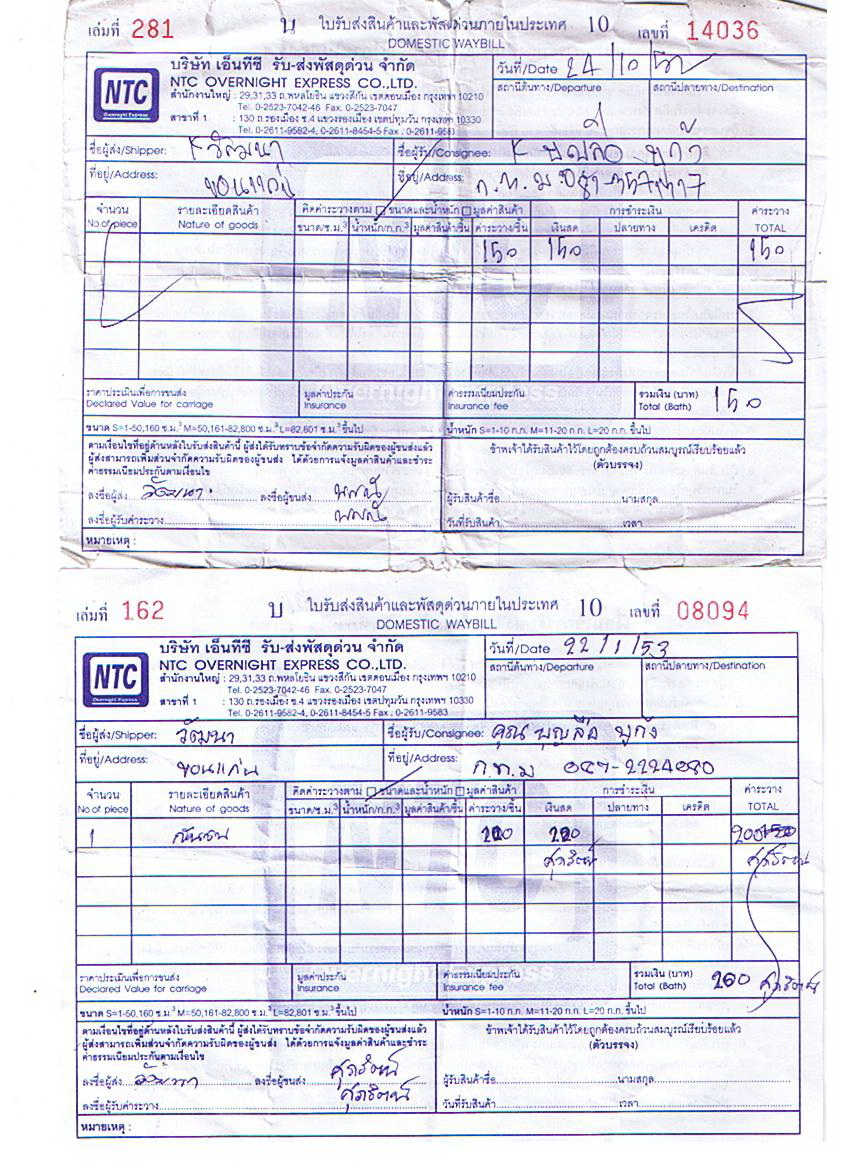 เล่มที่ 281 บ ใบรับส่งสินค้าและพัสดุด่วนภายในประเทศ 10 เลขที่ 14036
DOMESTIC WAYBILL
NTC
Overnight Express
บริษัท เอ็นทีซี รับ-ส่งพัสดุด่วน จำกัด
NTC OVERNIGHT EXPRESS CO.,LTD.
สำนักงานใหญ่ : 29,31,33 ถ.พหลโยธิน แขวงสีกัน เขตดอนเมือง กรุงเทพฯ 10210
Tel. 0-2523-7042-46 Fax. 0-2523-7047
สาขาที่ 1 : 130 ถ.รองเมือง ซ.4 แขวงรองเมือง เขตปทุมวัน กรุงเทพฯ 10330
Tel. 0-2611-9582-4, 0-2611-8454-5 Fax. 0-2611-9583
วันที่/Date 24/10/52
สถานีต้นทาง/Departure สถานีปลายทาง/Destination
ชื่อผู้ส่ง/Shipper: K วัฒนา ชื่อผู้รับ/Consignee: K
ที่อยู่/Address: ขอนแก่น ที่อยู่/Address: ก.ท.ม.
จำนวน รายละเอียดสินค้า คิดค่าระวางตาม ขนาดและน้ำหนัก มูลค่าสินค้า การชำระเงิน ค่าระวาง
No.of piece Nature of goods ขนาด/ซ.ม.³ น้ำหนัก/ก.ก.³ มูลค่าสินค้า/ชิ้น ค่าระวาง/ชิ้น เงินสด ปลายทาง เครดิต TOTAL
150 150 150
ราคาประเมินเพื่อการขนส่ง มูลค่าประกัน ค่าธรรมเนียมประกัน รวมเงิน (บาท)
Declared Value for carriage Insurance Insurance fee Total (Bath) 150
ขนาด S=1-50,160 ซ.ม.³ M=50,161-82,800 ซ.ม.³ L=82,801 ซ.ม.³ ขึ้นไป น้ำหนัก S=1-10 ก.ก. M=11-20 ก.ก. L=20 ก.ก. ขึ้นไป
ตามเงื่อนไขที่อยู่ด้านหลังใบรับส่งสินค้านี้ ผู้ส่งได้รับทราบข้อจำกัดความรับผิดของผู้ขนส่งแล้ว
ผู้ส่งสามารถเพิ่มส่วนจำกัดความรับผิดของผู้ขนส่ง ได้ด้วยการแจ้งมูลค่าสินค้าและชำระ
ค่าธรรมเนียมประกันตามเงื่อนไข
ข้าพเจ้าได้รับสินค้าไว้โดยถูกต้องครบถ้วนสมบูรณ์เรียบร้อยแล้ว
(ตัวบรรจง)
ลงชื่อผู้ส่ง วัฒนา ลงชื่อผู้ขนส่ง
ผู้รับสินค้าชื่อ นามสกุล
ลงชื่อผู้รับค่าระวาง
วันที่รับสินค้า เวลา
หมายเหตุ :
เล่มที่ 162 บ ใบรับส่งสินค้าและพัสดุด่วนภายในประเทศ 10 เลขที่ 08094
DOMESTIC WAYBILL
NTC
Overnight Express
บริษัท เอ็นทีซี รับ-ส่งพัสดุด่วน จำกัด
NTC OVERNIGHT EXPRESS CO.,LTD.
สำนักงานใหญ่ : 29,31,33 ถ.พหลโยธิน แขวงสีกัน เขตดอนเมือง กรุงเทพฯ 10210
Tel. 0-2523-7042-46 Fax. 0-2523-7047
สาขาที่ 1 : 130 ถ.รองเมือง ซ.4 แขวงรองเมือง เขตปทุมวัน กรุงเทพฯ 10330
Tel. 0-2611-9582-4, 0-2611-8454-5 Fax. 0-2611-9583
วันที่/Date 22/1/53
สถานีต้นทาง/Departure สถานีปลายทาง/Destination
ชื่อผู้ส่ง/Shipper: วัฒนา ชื่อผู้รับ/Consignee: คุณ บุญลือ
ที่อยู่/Address: ขอนแก่น ที่อยู่/Address: ก.ท.ม
จำนวน รายละเอียดสินค้า คิดค่าระวางตาม ขนาดและน้ำหนัก มูลค่าสินค้า การชำระเงิน ค่าระวาง
No.of piece Nature of goods ขนาด/ซ.ม.³ น้ำหนัก/ก.ก.³ มูลค่าสินค้า/ชิ้น ค่าระวาง/ชิ้น เงินสด ปลายทาง เครดิต TOTAL
1 กันชน 200
ราคาประเมินเพื่อการขนส่ง มูลค่าประกัน ค่าธรรมเนียมประกัน รวมเงิน (บาท)
Declared Value for carriage Insurance Insurance fee Total (Bath) 200
ขนาด S=1-50,160 ซ.ม.³ M=50,161-82,800 ซ.ม.³ L=82,801 ซ.ม.³ ขึ้นไป น้ำหนัก S=1-10 ก.ก. M=11-20 ก.ก. L=20 ก.ก. ขึ้นไป
ตามเงื่อนไขที่อยู่ด้านหลังใบรับส่งสินค้านี้ ผู้ส่งได้รับทราบข้อจำกัดความรับผิดของผู้ขนส่งแล้ว
ผู้ส่งสามารถเพิ่มส่วนจำกัดความรับผิดของผู้ขนส่ง ได้ด้วยการแจ้งมูลค่าสินค้าและชำระ
ค่าธรรมเนียมประกันตามเงื่อนไข
ข้าพเจ้าได้รับสินค้าไว้โดยถูกต้องครบถ้วนสมบูรณ์เรียบร้อยแล้ว
(ตัวบรรจง)
ลงชื่อผู้ส่ง วัฒนา ลงชื่อผู้ขนส่ง
ผู้รับสินค้าชื่อ นามสกุล
ลงชื่อผู้รับค่าระวาง
วันที่รับสินค้า เวลา
หมายเหตุ :